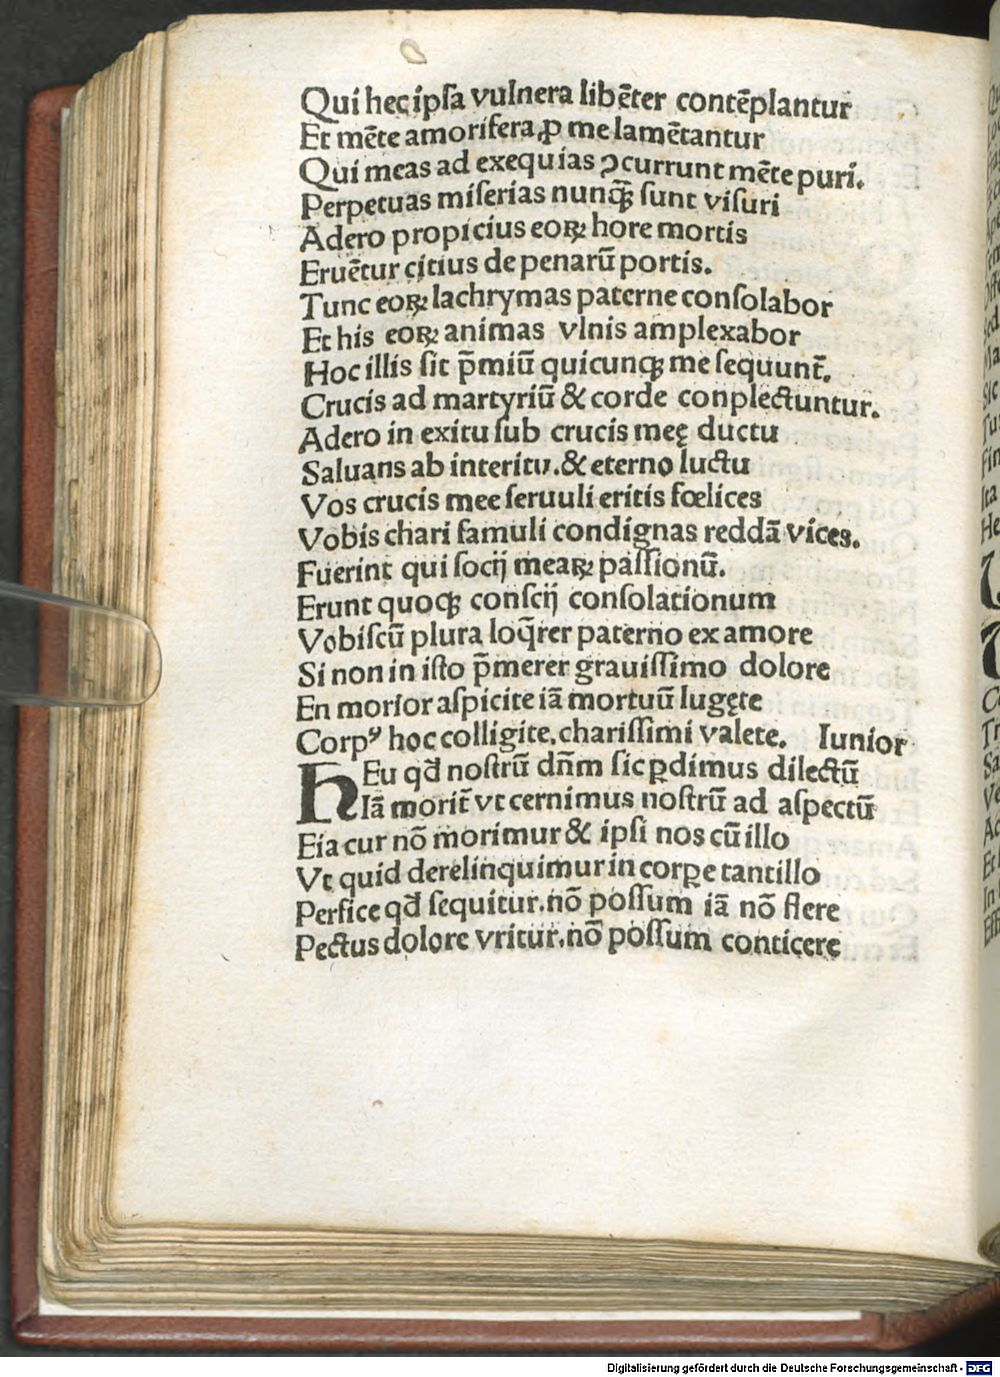 Qui hec̨ ipſa vulnera libēter contēplantur
Et mēte amorifera ꝓ me lamētantur
Qui meas ad exequias ↄcurrunt mēte puri.
Perpetuas miſerias nunq̄ꝫ ſunt viſuri
Adero propicius eoꝝ hore mortis
Eruētur citius de penarū portis.
Tunc eoꝝ lachrymas paterne conſolabor
Et his eoꝝ animas vlnis amplexabor
Hoc illis ſit p̄miū quicunqꝫ me ſequunt̄.
Crucis ad martyriū & corde conplectuntur.
Adero in exitu ſub crucis meę ductu
Saluans ab interitu. & eterno luctu
Vos crucis mee ſeruuli eritis fœlices
Vobis chari famuli condignas reddā vices.
Fuerint qui ſocij meaꝝ paſſionū.
Erunt quoqꝫ conſcij conſolationum
Vobiſcū plura loq̄rer paterno ex amore
Si non in iſto p̄merer grauiſſimo dolore
En morior aſpicite iā mortuū lugęte
Corpꝰ hoc colligite. chariſſimi valete. Iunior
HEu qđ noſtrū dn̄m ſic ꝑdimus dilectū
Iā morit̄ vt cernimus noſtrū ad aſpectū
Eia cur nō morimur & ipſi nos cū illo
Vt quid derelinquimur in corꝑe tantillo
Perfice qđ ſequitur. nō poſſum iā nō flere
Pectus dolore vritur. nō poſſum conticere
Digitalisierung gefördert durch die Deutsche Forschungsgemeinschaft - DFG